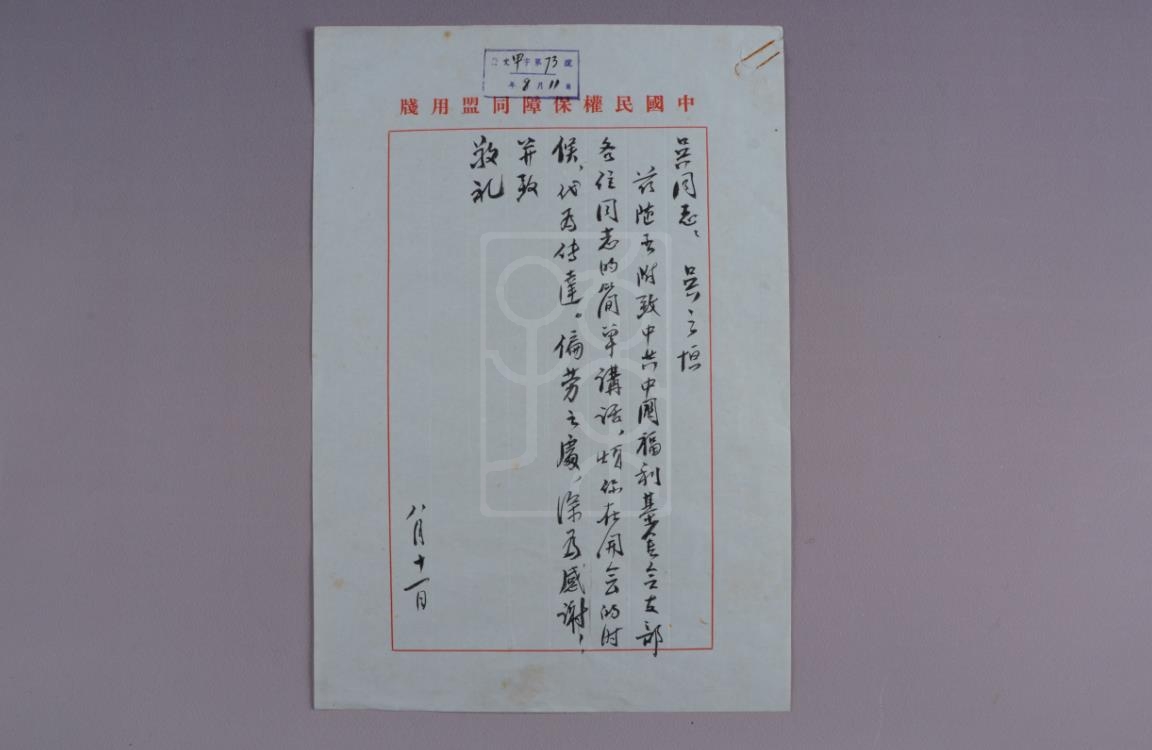 文甲字第73號
年8月11日
中國民權保障同盟用牋
吳同志： 吳之恒
茲随函附致中共中国福利基金会支部
各位同志的简单講话，烦你在開会的时
候、代为传達。偏劳之處，深为感谢！
并致
敬礼
八月十一日